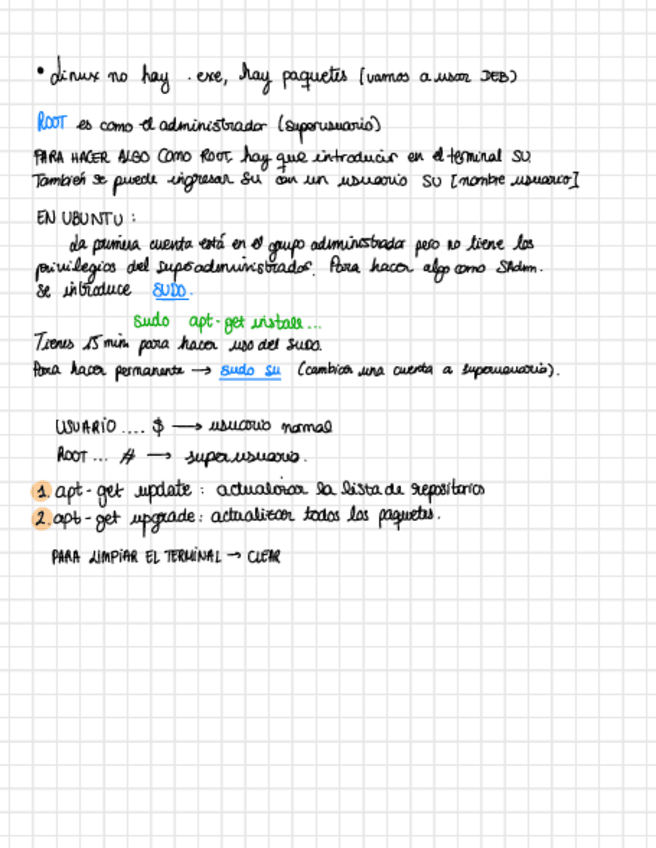 • Linux no hay .exe, hay paquetes (vamos a usar DEB)
ROOT es como el administrador (superusuario)
PARA HACER ALGO COMO ROOT, hay que introducir en el terminal SU.
También se puede ingresar su con un usuario SU [nombre usuario]
EN UBUNTU :
La primera cuenta está en el grupo administrador pero no tiene los
privilegios del superadministrador. Para hacer algo como SAdm.
se introduce SUDO.
sudo apt-get install...
Tienes 15 min para hacer uso del sudo.
Para hacer permanente → sudo su (cambiar una cuenta a superusuario).
USUARIO .... $ → usuario normal
ROOT ... # → superusuario.
1. apt-get update : actualizar la lista de repositorios
2. apt-get upgrade : actualizar todos los paquetes.
PARA LIMPIAR EL TERMINAL → CLEAR